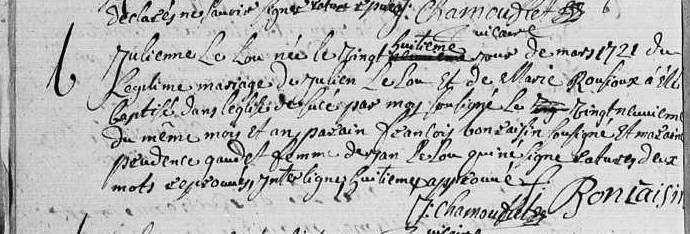 declarés ne sçavoir signer rature epreuvé J. Chamoudtet
vicaire
6 Julienne Le Lou née le vingt huitieme jour de mars 1721 du
Legitime mariage de Julien Le Lou Et de Marie Rousioux a été
baptisé dans leglise de sucé par moy soussigné Le vingt neuvieme
du meme mois et an parain francois bonraisin soussigné Et maraine
prudence gaudet femme de jan Le Lou qui ne signe ratures deux
mots reprouvés Interligne huitieme approuvé
J. Chamoudtet Bonraisin
vicaire